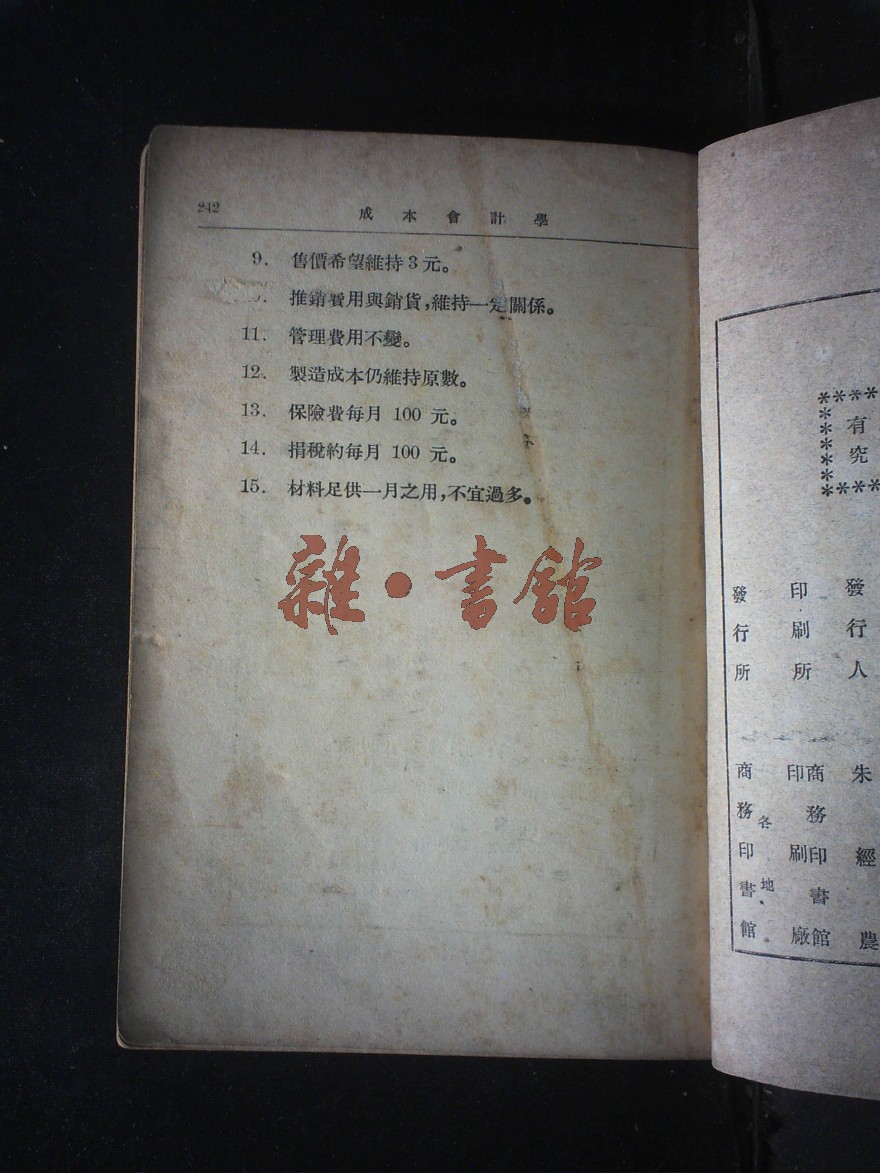 242
成本會計學
9. 售價希望維持3元。
推銷費用與銷貨,維持一定關係。
11. 管理費用不變。
12. 製造成本仍維持原數。
13. 保險費每月 100 元。
14. 捐稅約每月 100 元。
15. 材料足供一月之用,不宜過多。
雜·書館
有
究
發行人 朱經農
印刷所 商務印書館印刷廠
發行所 各地商務印書館